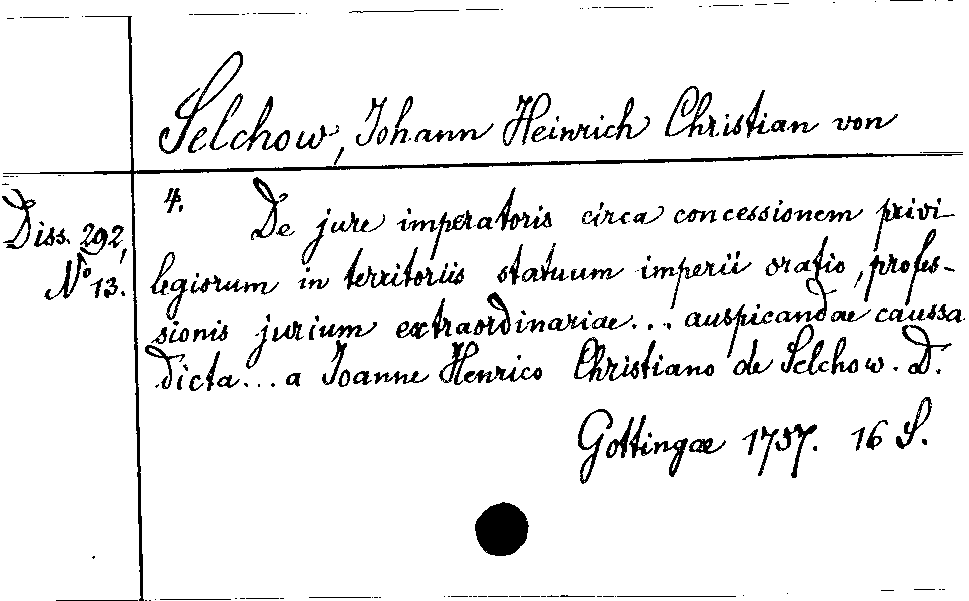 Selchow, Johann Heinrich Christian von
Diss. 292,
No 13.
4. De jure imperatoris circa concessionem privi-
legiorum in territoriis statuum imperii oratio, profes-
sionis jurium extraordinariae... auspicandae caussa
dicta... a Joanne Henrico Christiano de Selchow. D.
Gottingae 1757. 16 S.